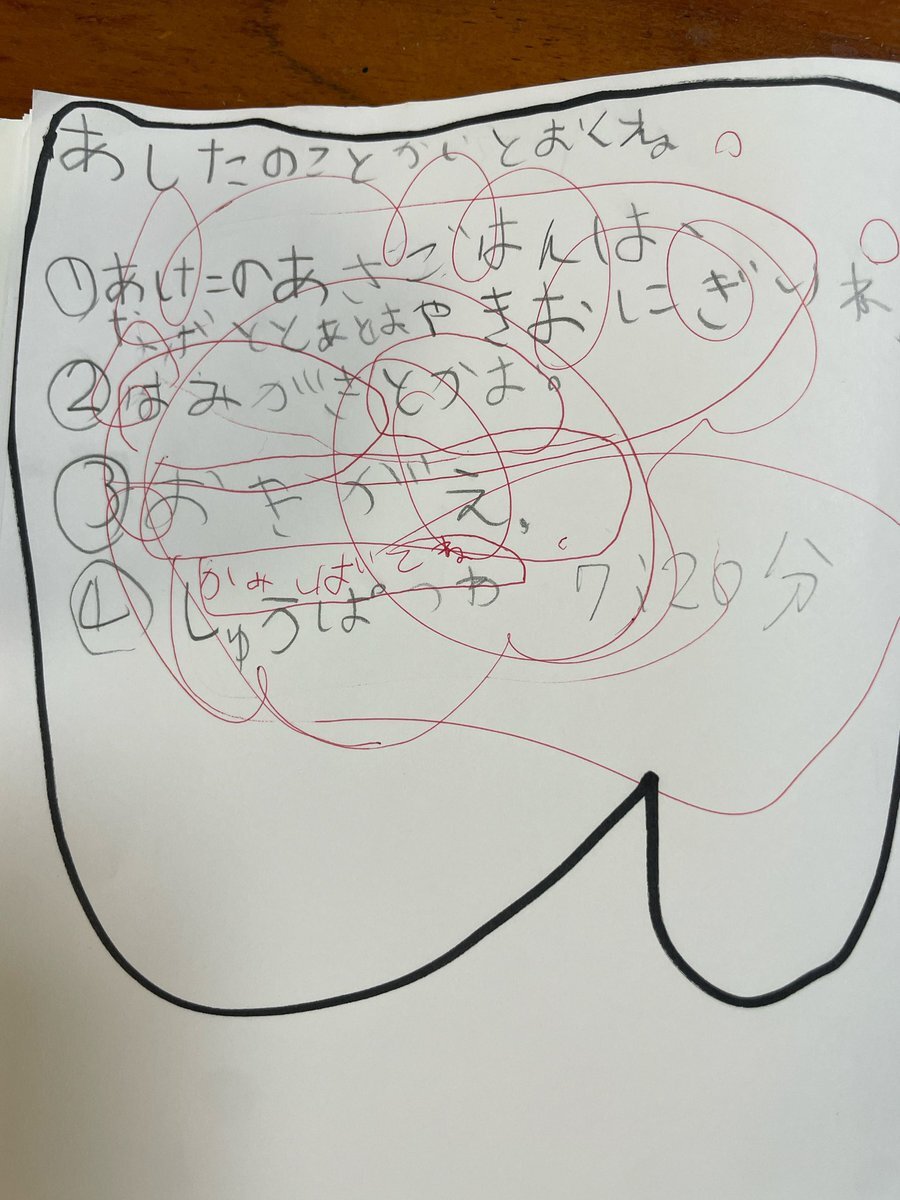 あしたのことかいとおくね。
①あしたのあさごはんは、
やきおにぎりね
②はみがきとかお。
③おきがえ、
かみしばいでね
④しゅうぱつわ 7:20分